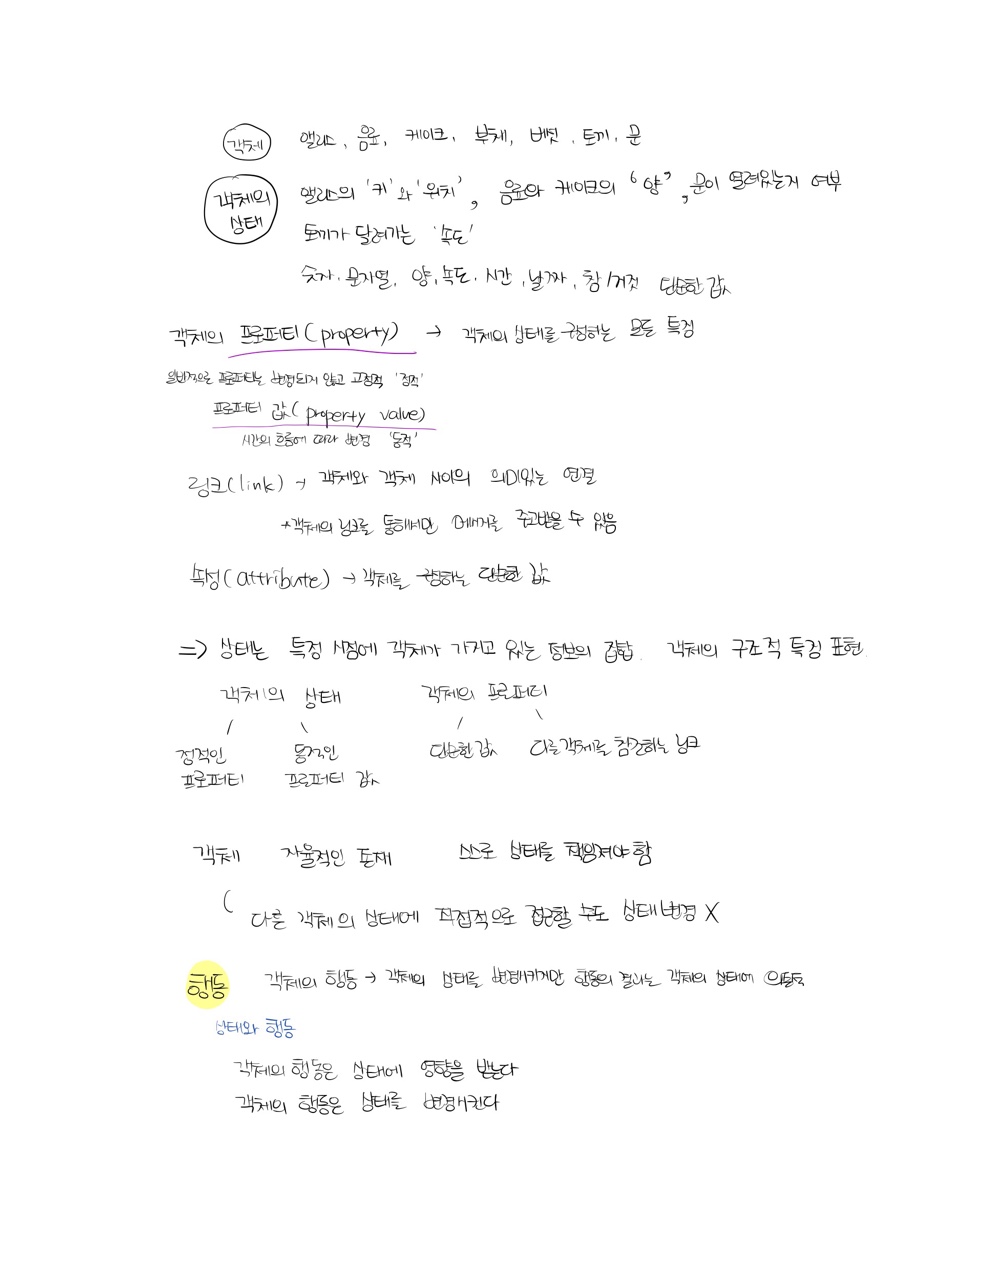 객체 앨리스, 음료, 케이크, 부채, 버섯, 토끼, 문
객체의 상태 앨리스의 '키'와 '위치', 음료와 케이크의 '양', 문이 열려있는지 여부
토끼가 달려가는 '속도'
숫자, 문자열, 양, 속도, 시간, 날짜, 참/거짓 단순한 값
객체의 프로퍼티(property) → 객체의 상태를 구성하는 모든 특징
일반적으로 프로퍼티는 변경되지 않고 고정적 '정적'
프로퍼티 값(property value)
시간의 흐름에 따라 변경 '동적'
링크(link) → 객체와 객체 사이의 의미있는 연결
→객체의 링크를 통해서만 메시지를 주고받을 수 있음
속성(attribute) → 객체를 구성하는 단순한 값
=> 상태는 특정 시점에 객체가 가지고 있는 정보의 집합. 객체의 구조적 특징 표현.
객체의 상태 객체의 프로퍼티
정적인 동적인 단순한 값 다른객체를 참조하는 링크
프로퍼티 프로퍼티 값
객체 자율적인 존재 스스로 상태를 책임져야 함
( 다른 객체의 상태에 직접적으로 접근할 수도 상태변경 X
행동 객체의 행동 → 객체의 상태를 변경시키지만 행동의 결과는 객체의 상태에 의존적
상태와 행동
객체의 행동은 상태에 영향을 받는다
객체의 행동은 상태를 변경시킨다